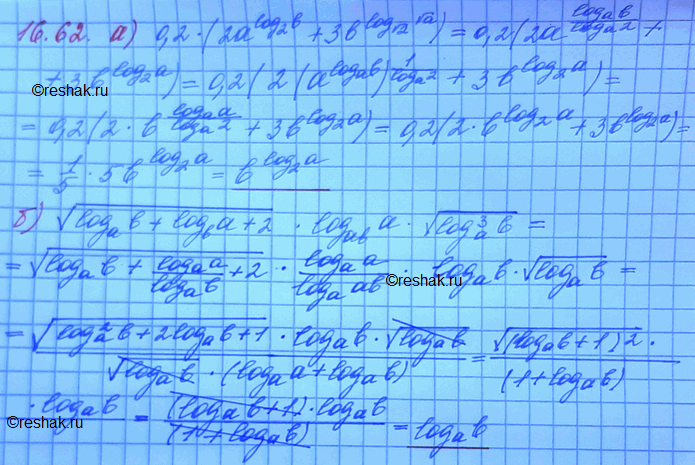 16.62. а) 0,2 · (2a^{log_2 b} + 3b^{log_{√2} √a}) = 0,2(2a^{\frac{log_a b}{log_a 2}} +
+ 3b^{log_2 a}) = 0,2(2(a^{log_a b})^{\frac{1}{log_a 2}} + 3b^{log_2 a}) =
©reshak.ru
©reshak.ru
= 0,2(2 · b^{\frac{log_a a}{log_a 2}} + 3b^{log_2 a}) = 0,2(2 · b^{log_2 a} + 3b^{log_2 a}) =
= \frac{1}{5} · 5b^{log_2 a} = b^{log_2 a}
б) √(log_a b + log_b a + 2) · log_{ab} a · √(log_a^3 b) =
= √(log_a b + \frac{log_a a}{log_a b} + 2) · \frac{log_a a}{log_a ab} · log_a b · √(log_a b) =
= \frac{√(log_a^2 b + 2log_a b + 1) · log_a b · √(log_a b)}{√(log_a b) · (log_a a + log_a b)} = \frac{√((log_a b + 1)^2) ·}{(1 + log_a b)}
\frac{· log_a b}{} = \frac{(log_a b + 1) · log_a b}{(1 + log_a b)} = log_a b
©reshak.ru
©reshak.ru